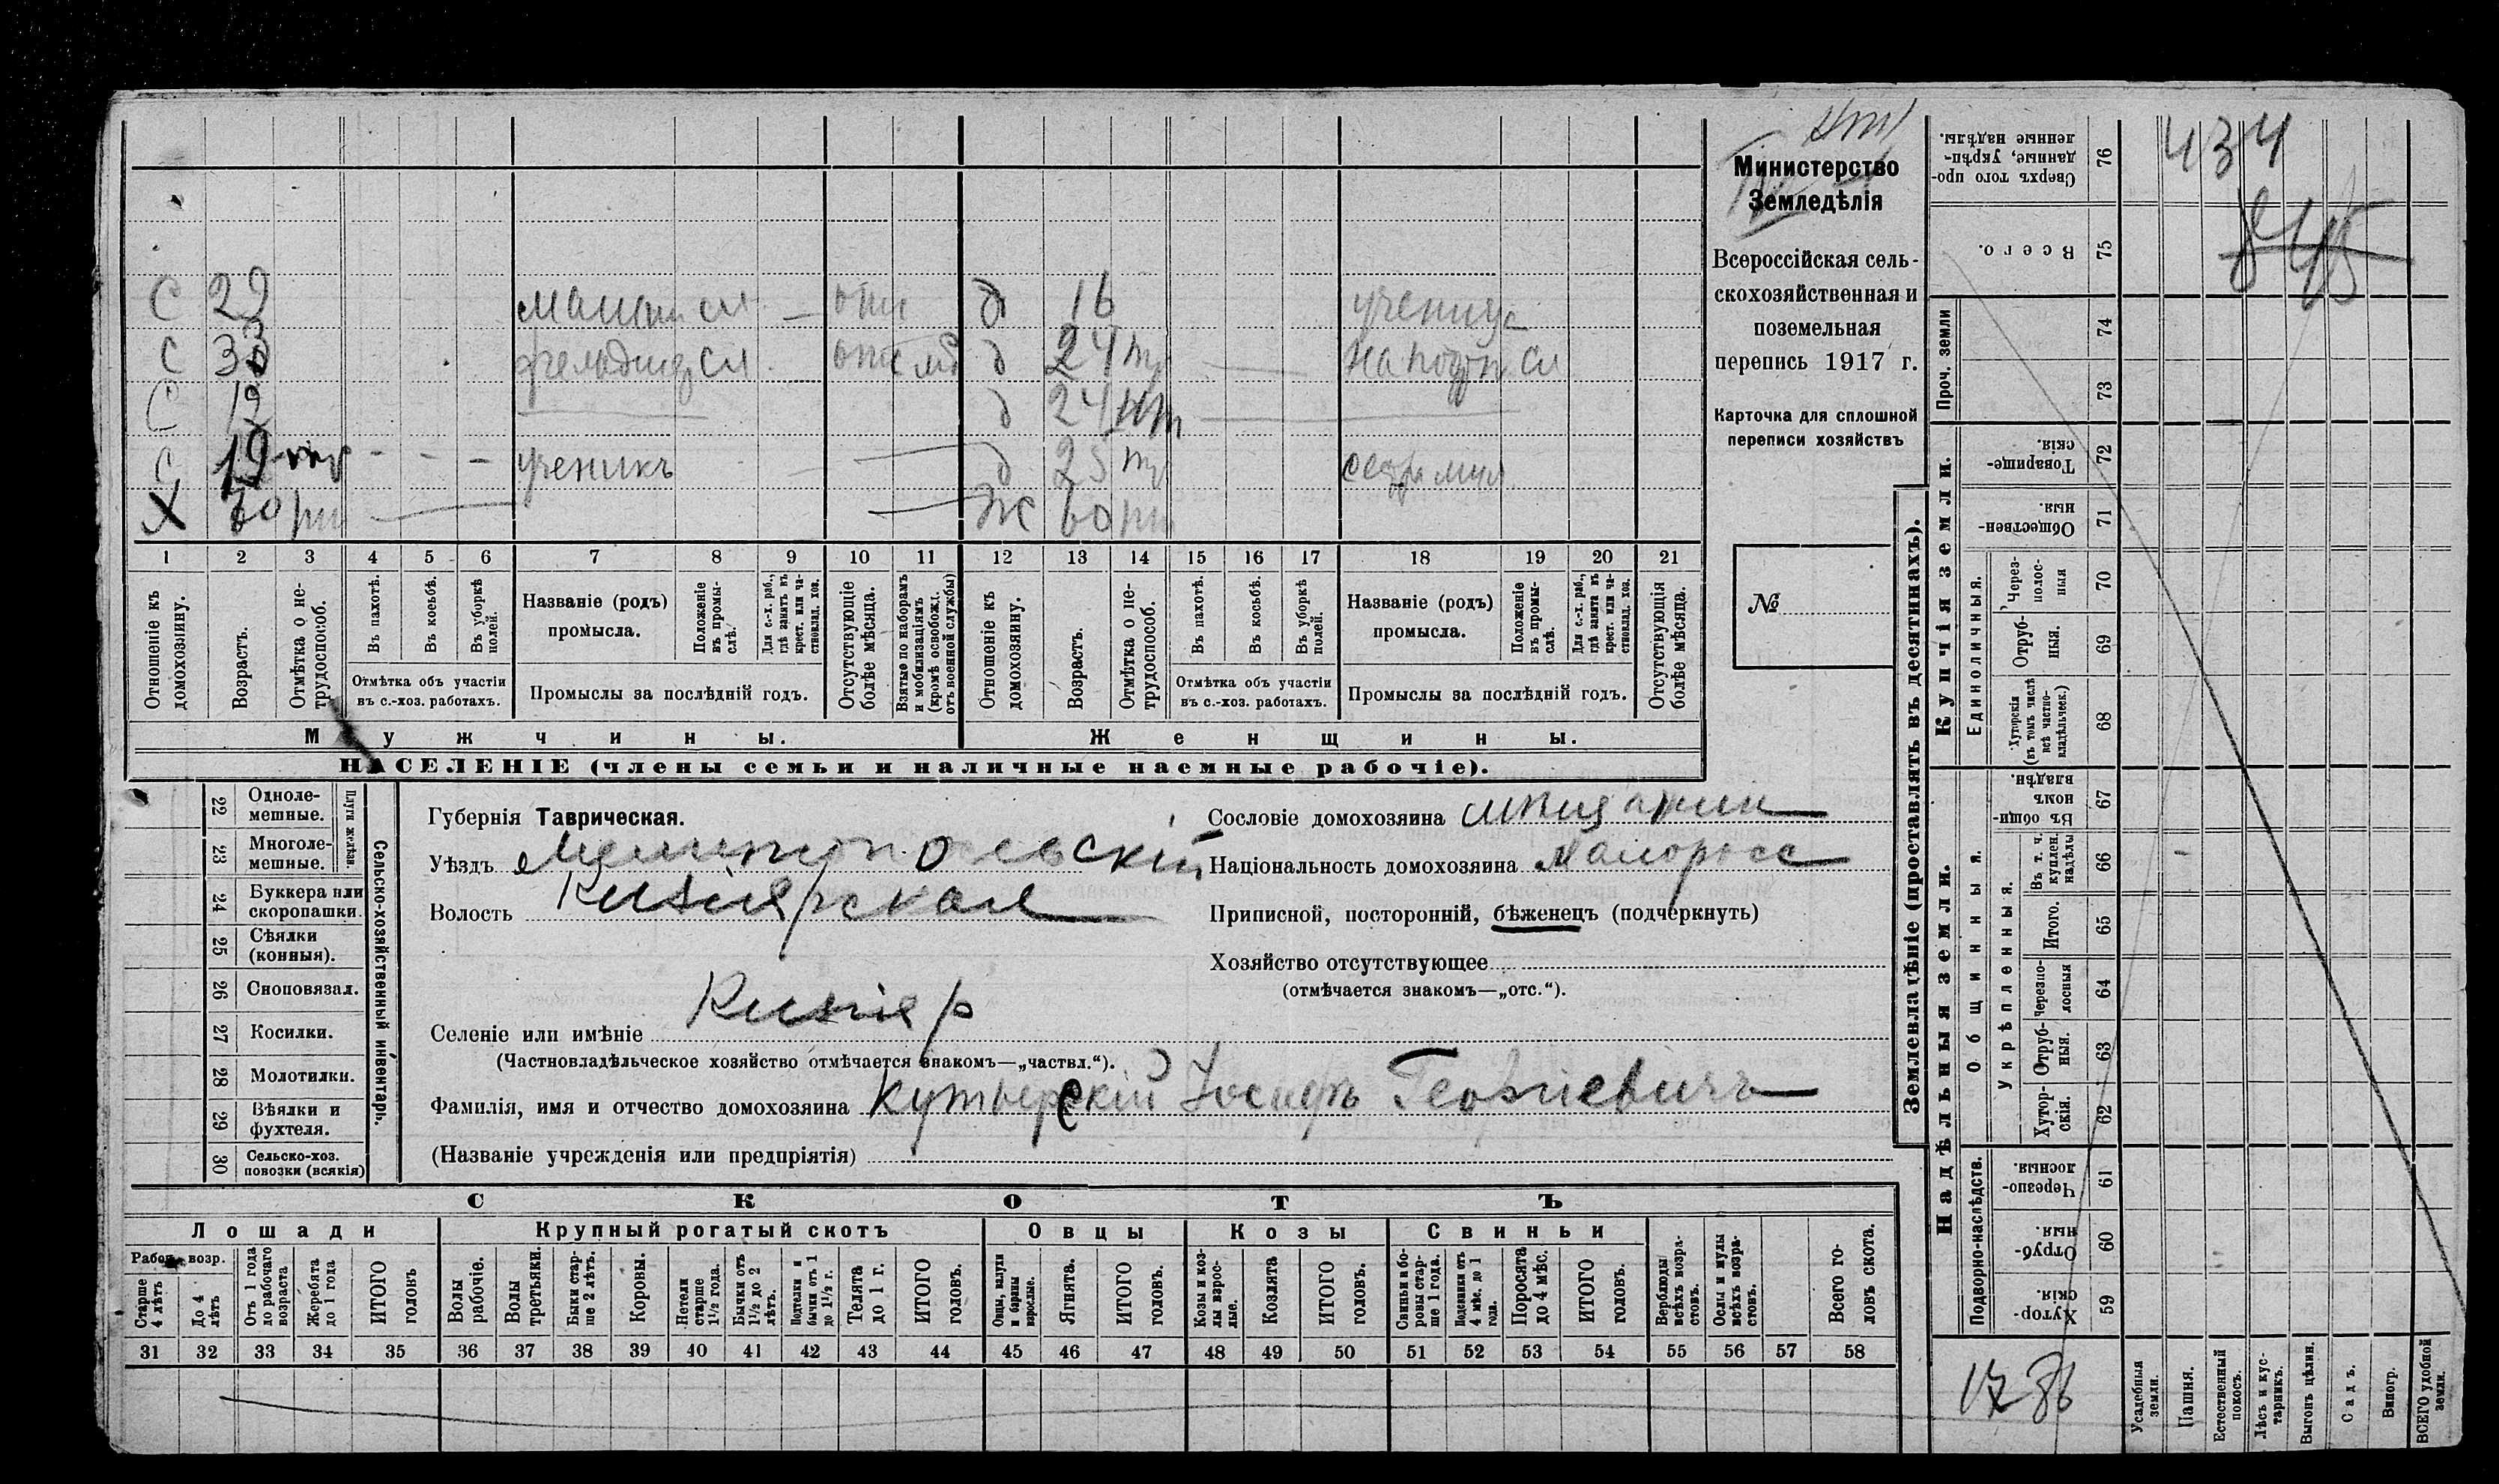 434
845
Министерство
Земледѣлія
Всероссійская сель-
скохозяйственная и
поземельная
перепись 1917 г.
Карточка для сплошной
переписи хозяйствъ
№
С 29 отп д 16
С д 24
С 12 д 24
С 19 ученикъ д 25
Х рт Ж 60 рт
1 2 3 4 5 6 7 8 9 10 11 12 13 14 15 16 17 18 19 20 21
Отношеніе къ домохозяину.
Возрастъ.
Отмѣтка о не-трудоспособ.
Въ пахотѣ.
Въ косьбѣ.
Въ уборкѣ полей.
Отмѣтка объ участіи въ с.-хоз. работахъ.
Названіе (родъ) промысла.
Положеніе въ промы-слѣ.
Для с.-х. раб., гдѣ занятъ въ крест. или ча-стновлад. хоз.
Промыслы за послѣдній годъ.
Отсутствующіе болѣе мѣсяца.
Взятые по наборамъ и мобилизаціямъ (кромѣ освобожд. отъ военной службы)
Отношеніе къ домохозяину.
Возрастъ.
Отмѣтка о не-трудоспособ.
Въ пахотѣ.
Въ косьбѣ.
Въ уборкѣ полей.
Отмѣтка объ участіи въ с.-хоз. работахъ.
Названіе (родъ) промысла.
Положеніе въ промы-слѣ.
Для с.-х. раб., гдѣ занята въ крест. или ча-стновлад. хоз.
Промыслы за послѣдній годъ.
Отсутствующія болѣе мѣсяца.
Мужчины. Женщины.
НАСЕЛЕНІЕ (члены семьи и наличные наемные рабочіе).
Сельско-хозяйственный инвентарь.
Плуги желѣзн.
22 Одноле-мешные.
23 Многоле-мешные.
24 Буккера или скоропашки.
25 Сѣялки (конныя).
26 Сноповязал.
27 Косилки.
28 Молотилки.
29 Вѣялки и фухтеля.
30 Сельско-хоз. повозки (всякія)
Губернія Таврическая.
Уѣздъ Мелитопольскій
Волость Кизіярская
Селеніе или имѣніе Кизіяр
(Частновладѣльческое хозяйство отмѣчается знакомъ—„частвл.“).
Фамилія, имя и отчество домохозяина Іосифъ Георгіевичъ
(Названіе учрежденія или предпріятія)
Сословіе домохозяина мѣщанин
Національность домохозяина малоросс
Приписной, посторонній, бѣженецъ (подчеркнуть)
Хозяйство отсутствующее
(отмѣчается знакомъ—„отс.“).
СКОТЪ
Лошади Крупный рогатый скотъ Овцы Козы Свиньи
Рабоч. возр.
Старше 4 лѣтъ
До 4 лѣтъ
Отъ 1 года до рабочаго возраста
Жеребята до 1 года
ИТОГО головъ
Волы рабочіе.
Волы третьяки.
Быки стар-ше 2 лѣтъ.
Коровы.
Нетели старше 1½ года.
Бычки отъ 1½ до 2 лѣтъ.
Подтелки и бычки отъ 1 до 1½ г.
Телята до 1 г.
ИТОГО головъ.
Овцы, валухи и бараны взрослые.
Ягнята.
ИТОГО головъ.
Козы и коз-лы взрос-лые.
Козлята
ИТОГО головъ.
Свиньи и бо-ровы стар-ше 1 года.
Подсвинки отъ 4 мѣс. до 1 года.
Поросята до 4 мѣс.
ИТОГО головъ.
Верблюды всѣхъ возра-стовъ.
Ослы и мулы всѣхъ возра-стовъ.
Всего го-ловъ скота.
31 32 33 34 35 36 37 38 39 40 41 42 43 44 45 46 47 48 49 50 51 52 53 54 55 56 57 58
Землевладѣніе (проставлять въ десятинахъ).
Надѣльныя земли. Купчія земли. Проч. земли
Подворно-наслѣдств.
Общинныя.
Укрѣпленныя.
Единоличныя.
Сверхъ того про-данные, укрѣп-ленные надѣлы. 76
Всего. 75
74
73
Товарище-скія. 72
Обществен-ныя. 71
Через-полос-ныя 70
Отруб-ныя. 69
Хуторскія (въ томъ числѣ всѣ частно-владѣльческ.) 68
Въ общин-номъ владѣн. 67
Въ т. ч. куплен. надѣлы 66
Итого. 65
Черезпо-лосныя 64
Отруб-ныя. 63
Хутор-скія. 62
Черезпо-лосныя. 61
Отруб-ныя. 60
Хутор-скія. 59
Усадебныя земли.
Пашня.
Естественный покосъ.
Лѣсъ и кус-тарник.
Выгонъ цѣлин.
Садъ.
Виногр.
ВСЕГО удобной земли.